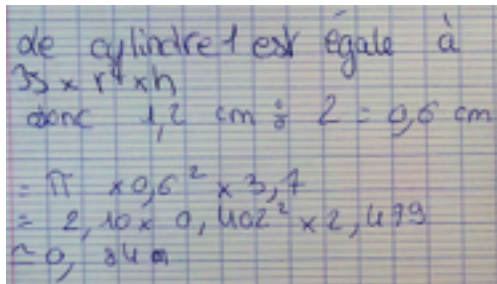 de cylindre 1 est égale à
x r x h
donc 1,2 cm ÷ 2 = 0,6 cm
= π × 0,6² × 3,7
= 2,10 × 0,402² × 2,499
≈ 0,